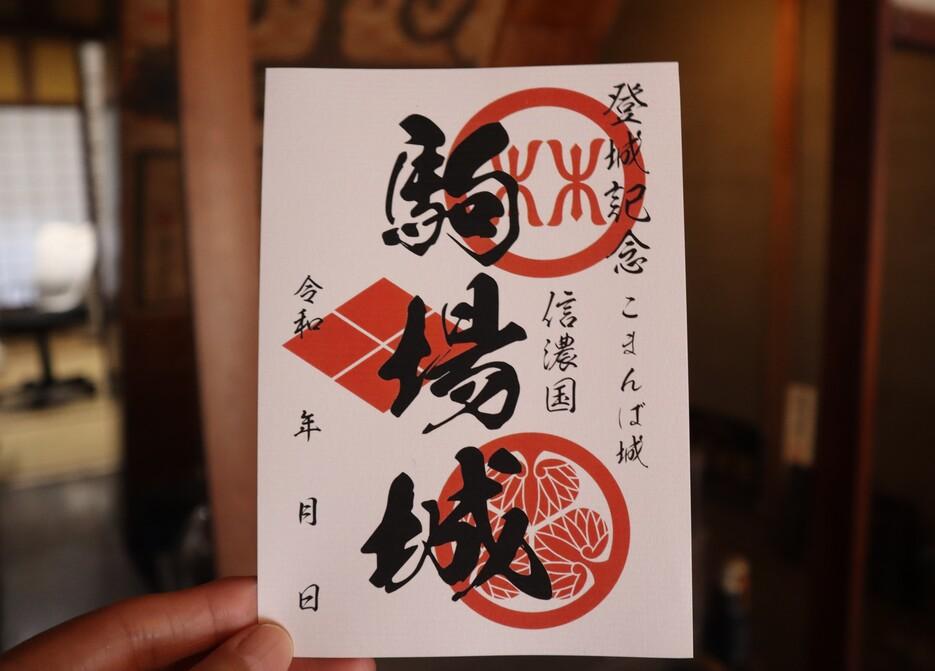 登城記念 こまんば城
信濃国
駒場城
令和 年 月 日